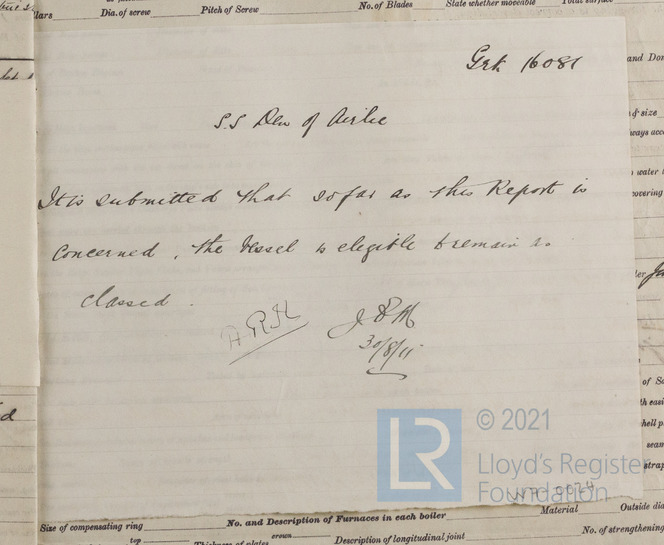 lars
Dia. of screw
Pitch of Screw
No. of Blades
State whether moveable
Total surface
Grk 16081
S.S Den of Airlie
It is submitted that so far as this Report is
concerned, the Vessel is eligible to remain as
classed.
J S M
30/8/11
and Don
& size
ways acc
water t
overing
of So
th easi
hell p
seam
strap
LR
© 2021
Lloyd's Register
Foundation
Material
Outside dia
No. and Description of Furnaces in each boiler
Size of compensating ring
No. of strengthening
top
crown
Thickness of plates
Description of longitudinal joint